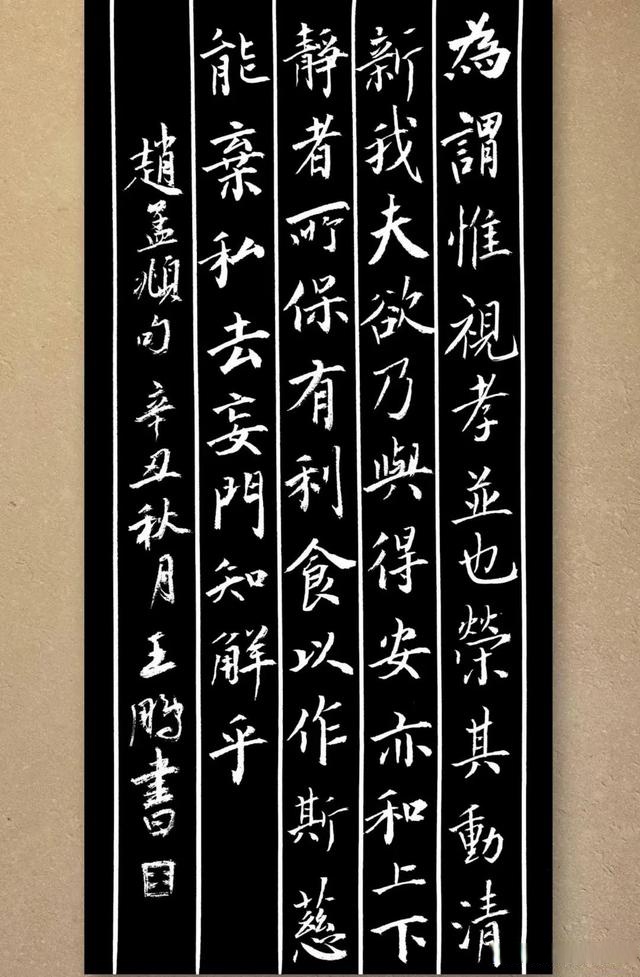 為謂惟視孝並也榮其動清
新我夫欲乃與得安亦和上下
靜者所保有利食以作斯慈
能棄私去妄門知解乎
趙孟頫句辛丑秋月王鵬書